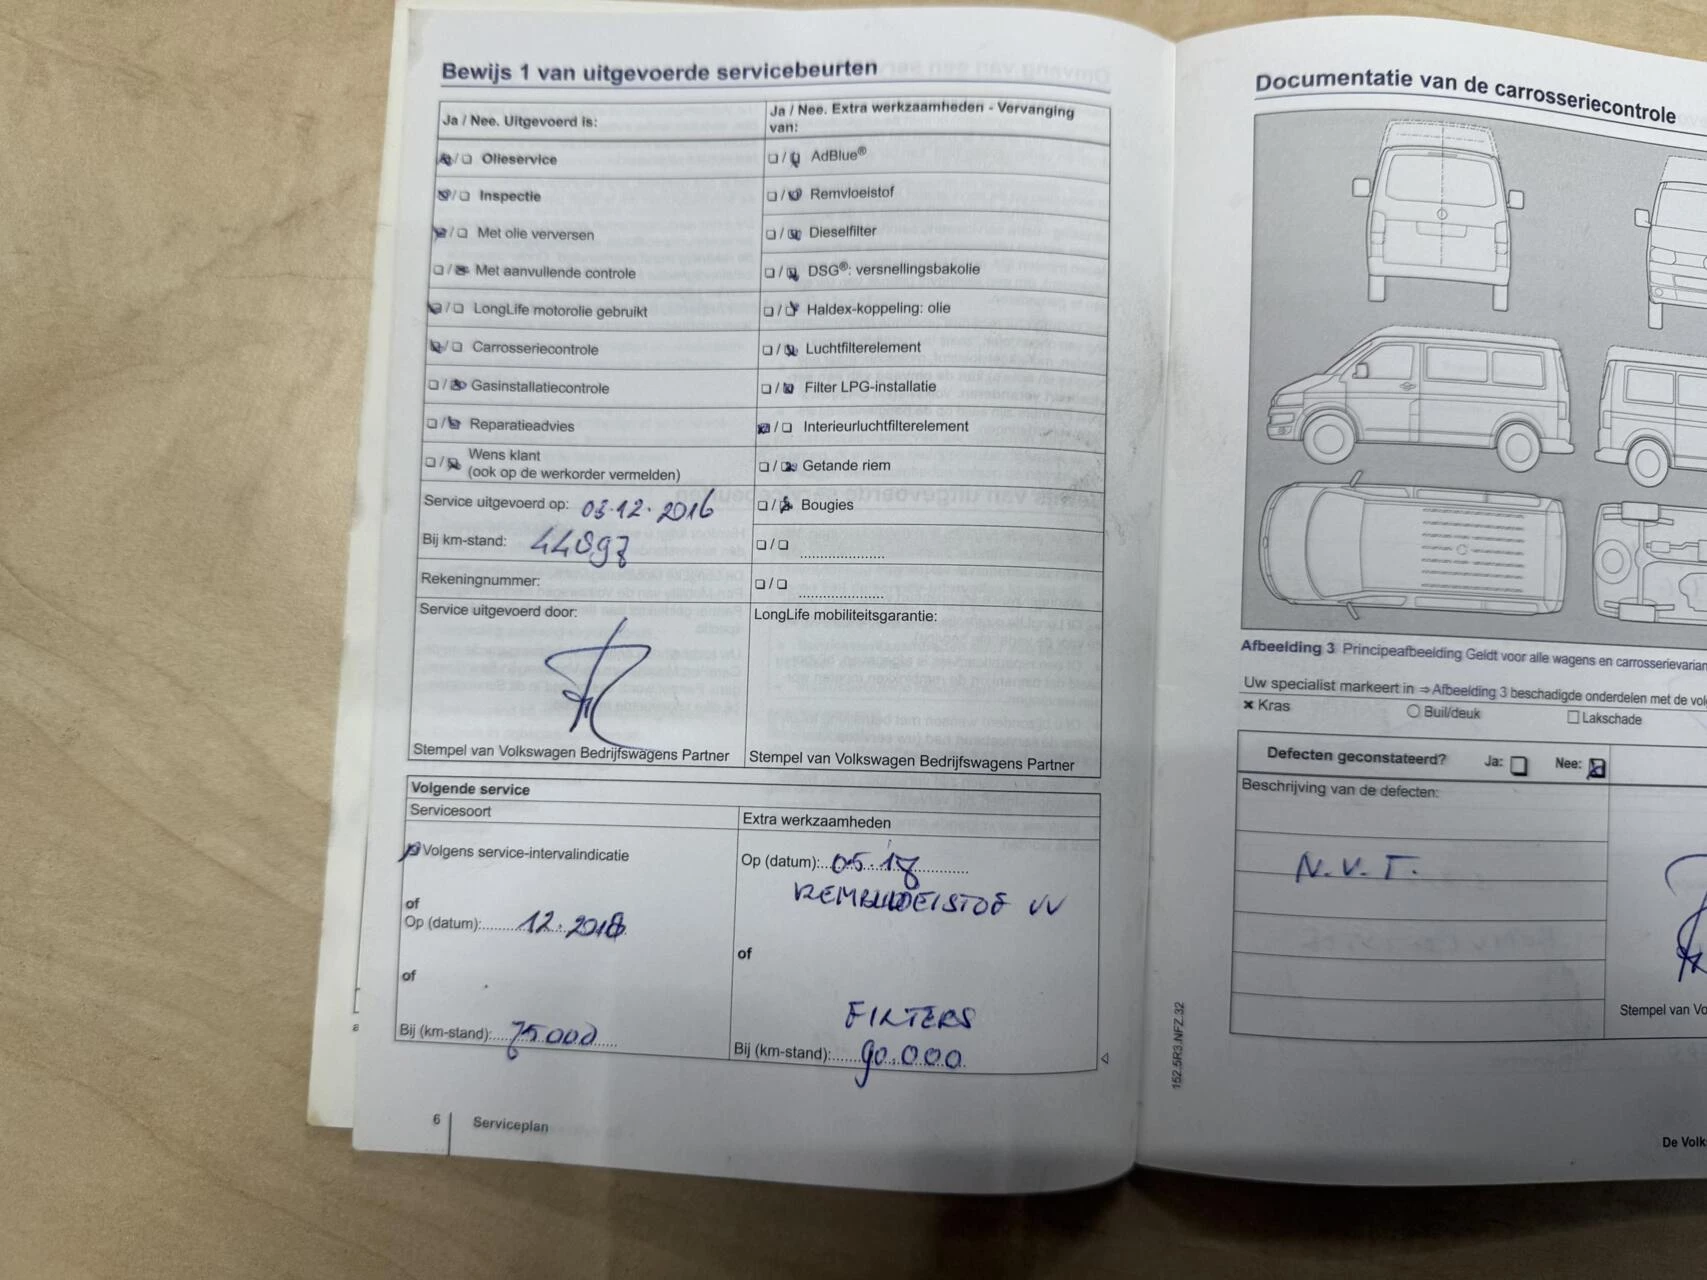 Bewijs 1 van uitgevoerde servicebeurten
Ja / Nee. Uitgevoerd is:
Olieservice
Inspectie
Met olie verversen
Met aanvullende controle
LongLife motorolie gebruikt
Carrosseriecontrole
Gasinstallatiecontrole
Reparatieadvies
Wens klant
(ook op de werkorder vermelden)
Service uitgevoerd op: 03.12.2016
Bij km-stand:
Rekeningnummer:
Service uitgevoerd door:
Stempel van Volkswagen Bedrijfswagens Partner
Ja / Nee. Extra werkzaamheden - Vervanging
van:
AdBlue®
Remvloeistof
Dieselfilter
DSG®: versnellingsbakolie
Haldex-koppeling: olie
Luchtfilterelement
Filter LPG-installatie
Interieurluchtfilterelement
Getande riem
Bougies
LongLife mobiliteitsgarantie:
Stempel van Volkswagen Bedrijfswagens Partner
Volgende service
Servicesoort
Volgens service-intervalindicatie
of
Op (datum): 12.2018
of
Bij (km-stand): 75000
Extra werkzaamheden
Op (datum): 05.18
REMVLOEISTOF VV
of
FILTERS
Bij (km-stand): 90.000
6 Serviceplan
Documentatie van de carrosseriecontrole
Afbeelding 3 Principeafbeelding Geldt voor alle wagens en carrosserievarian
Uw specialist markeert in ⇒ Afbeelding 3 beschadigde onderdelen met de vol
× Kras ○ Buil/deuk □ Lakschade
Defecten geconstateerd? Ja: Nee:
Beschrijving van de defecten:
N.V.T.
Stempel van Vo
152.5R3.NFZ.32
De Volk